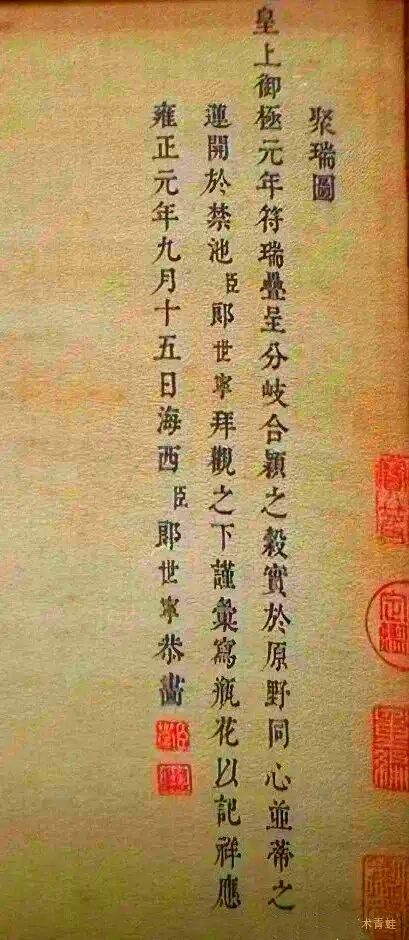 聚瑞圖
皇上御極元年符瑞疊呈分岐合穎之穀實於原野同心並蒂之
蓮開於禁池臣郎世寧拜觀之下謹彙寫瓶花以記祥應
雍正元年九月十五日海西臣郎世寧恭畫
术青蛙